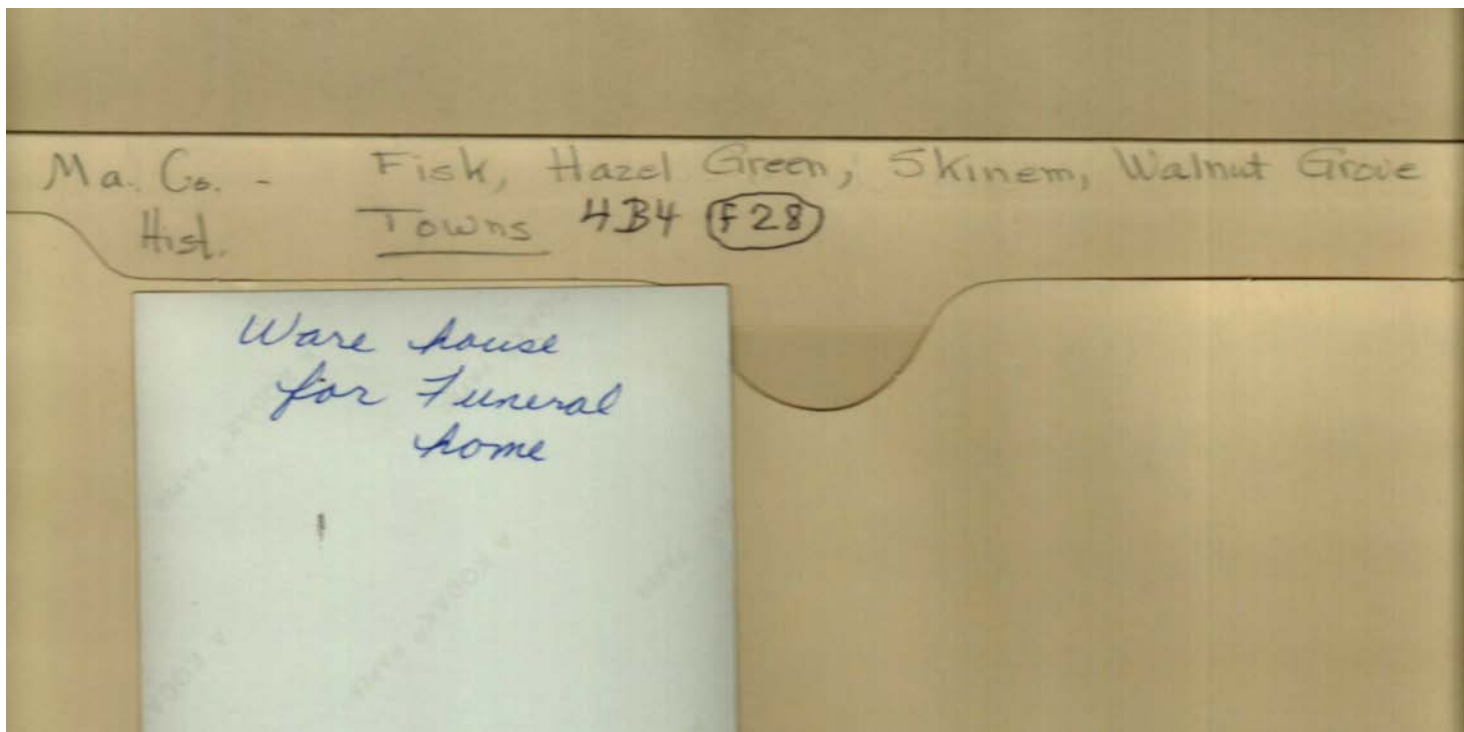 Ma. Co. - Fisk, Hazel Green, Skinem, Walnut Grove
Hist. Towns 4B4 F28
Ware house
for Funeral
home
A KODAK PAPER